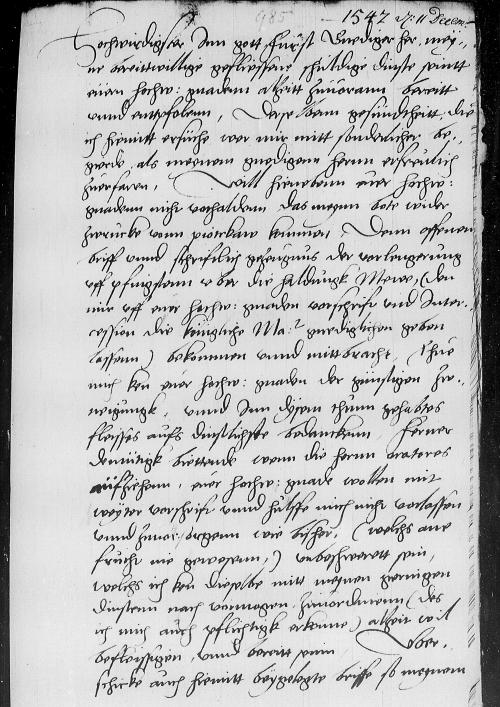 985 1547 d: 11 Decem
Hochwirdigster Inn gott Furst Gnediger her, mey,,
ne bereittwillige gefliessene schuldige dinste seintt
eurn hochw: gnadenn altzeitt zuuorann bereitt
vnnd entpfolenn, Derselbenn gesundtheitt, die
ich hiemitt ersuche, wer mir mitt sonderlicher be,,
girde, als meynem gnedigenn hernn erfreulich
zuerfaren, Will hienebenn euer hochw:
gnadenn nicht vorhaldenn das meyn bote wider
zuruecke vonn piotrkaw kommen, Denn offenen
briff vnnd schrifftlich gezeugnus der vorlengerung
vff pfingstenn vber die haldungk Mewe, (den
mir vff euer hochw: gnaden vorschrifft vnd Inter,,
cession die königliche Ma:t gnediglichen geben
lassenn) bekommen vnnd mittbracht, Thue
mich ken euer hochw: gnaden der günstigen zu,,
neigungk, vnnd Inn dysem thunn gehabtes
fleisses auffs dinstlichste bedanckenn, Ferner
demütigk bittende wenn die hernn oratores
auffziehenn, euer hochw: gnade wolten mit
weyter vorschrifft vnnd hülffe mich nicht vorlassen
vnnd zuuorsorgenn wie bisher, (welchs ane
frucht nie gewesenn,) vnbeschwerett sein,
Welchs ich ken dieselbe mitt meynen geringen
dinstenn nach vormogen, zuuordinenn (des
ich mich auch pflichtigk erkenne) altzeit wil
befleissigen, vnnd bereitt seinn Vber,,
schicke auch hiemitt beygelegte briffe so meynem